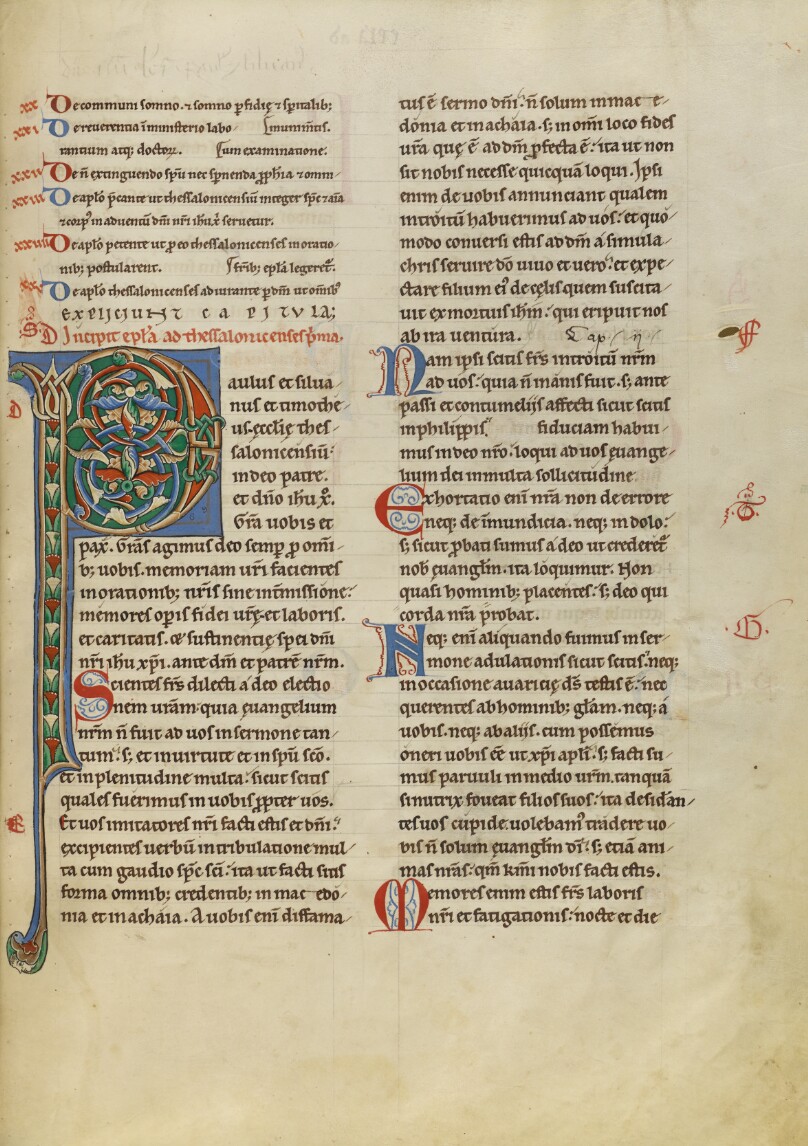 xx De communi somno. ⁊ somno pfidię ⁊ spitalib;
xxi De reuerentia ī ministerio labo⸝ inmunitis.
rantium atq; doctoꝝ. cum examinatione.
xxv De ñ extinguendo spū nec spnenda ꝓphia ⁊ omni⸝
xxvi De aplo p̄cante ut thessalonicensiū integer spc̄ ⁊ aīa
⁊ corp' in aduentū dm̄ nr̄i ihu x̄ seruetur.
xxvii De aplo petente ut ꝓ eo thessalonicenses in oratio⸝
nib; postularent. frīb; epl̄a legeret.
De aplo thessalonicenses adiurante p dm̄ ut omīb'
EXPLICIUNT CAPITVLA;
Incipit epl̄a ad thessalonicenses p̄ma.
Paulus et silua⸝
nus et timothe⸝
us. ecclię thes⸝
salonicensiū:
in deo patre.
et dn̄o ihu x̄.
Gr̄a uobis et
pax. Gr̄as agimus deo semp ꝓ omī⸝
b; uobis. memoriam ur̄i facientes
in orationib; nr̄is sine int̄missione:
memores opis fidei ur̄ę. et laboris.
et caritatis. & sustinentię spei dnī
nr̄i ihu xp̄i. ante dm̄ et patrē nr̄m.
Scientes fr̄s dilecti a deo electio⸝
nem ur̄am: quia euangelium
nr̄m n̄ fuit ad uos in sermone tan⸝
tum: s; et in uirtute et in spū scō.
et in plenitudine multa: sicut scitis
quales fuerimus in uobis ꝓpter uos.
E Et uos imitatores nr̄i facti estis et dnī:
excipientes uerbū in tribulatione mul⸝
ta cum gaudio spc̄ scī: ita ut facti sitis
forma omnib; credentib; in macedo⸝
nia et in achaia. A uobis enī diffama⸝
tus ē sermo dnī: n̄ solum in mace⸝
donia et in achaia. s; in omī loco fides
ur̄a quę ē ad dm̄ ꝓfecta ē: ita ut non
sit nobis necesse quicquā loqui. Ipsi
enim de uobis annunciant qualem
introitū habuerimus ad uos: et quo⸝
modo conuersi estis ad dm̄ a simula⸝
chris seruire dō uiuo et uero: et expe⸝
ctare filium ei' de cęlis quem suscita⸝
uit ex mortuis ihm̄: qui eripuit nos
ab ira uentura. Cap. ij.
Nam ipsi scitis fr̄s introitū nr̄m
ad uos: quia n̄ inanis fuit. s; ante
passi et contumelijs affecti sicut scitis
in philippis. fiduciam habui⸝
mus in deo nr̄o. loqui ad uos euange⸝
lium dei in multa sollicitudine.
Exhortatio enī nr̄a non de errore
neq; de īmundicia. neq; in dolo:
s; sicut ꝓbati sumus a deo ut crederet
nob euangliū. ita loquimur. Non
quasi hominib; placentes. s; deo qui
corda nr̄a probat.
G Neq; enī aliquando fuimus in ser⸝
mone adulationis sicut scitis: neq;
in occasione auaricię ds̄ testis ē: nec
querentes ab hominib; gl̄am. neq; a
uobis. neq; ab alijs. cum possemus
oneri uobis ēē ut xp̄i apl̄i: s; facti su⸝
mus paruuli in medio ur̄m. tanquā
si nutrix foueat filios suos: ita desidan⸝
tes uos cupide. uolebam' tradere uo⸝
bis n̄ solum euangliū dī: s; etiā ani⸝
mas nr̄as: qm̄ kmī nobis facti estis.
Memores enim estis fr̄s laboris
nr̄i et fatigationis: nocte et die